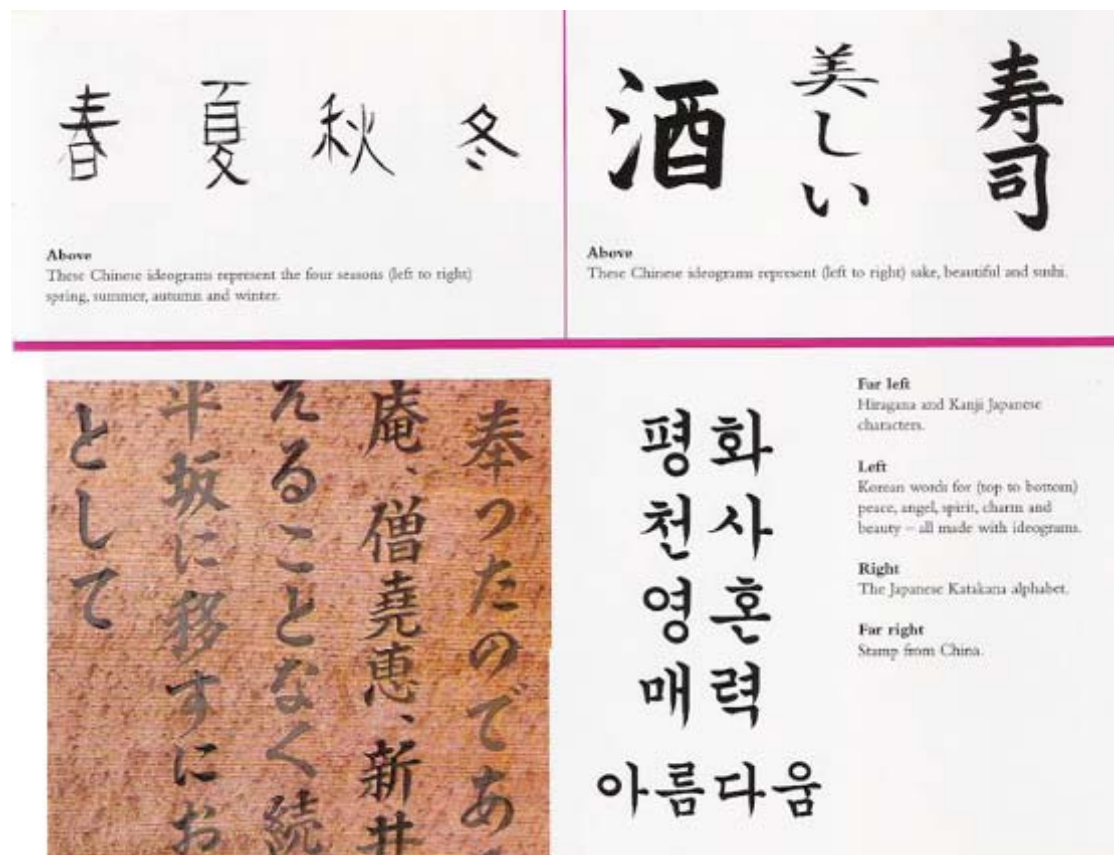 春 夏 秋 冬
Above
These Chinese ideograms represent the four seasons (left to right)
spring, summer, autumn and winter.
酒 美しい 寿司
Above
These Chinese ideograms represent (left to right) sake, beautiful and sushi.
奉ったのであ
庵、僧堯恵、新井
えることなく続
平坂に移すにお
として
평화
천사
영혼
매력
아름다움
Far left
Hiragana and Kanji Japanese
characters.
Left
Korean words for (top to bottom)
peace, angel, spirit, charm and
beauty – all made with ideograms.
Right
The Japanese Katakana alphabet.
Far right
Stamp from China.